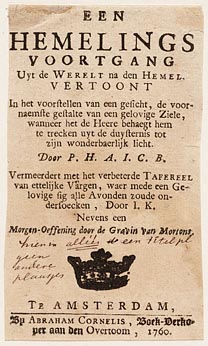 EEN
HEMELINGS
VOORTGANG
Uyt de WERELT na den HEMEL.
VERTOONT
In het voorstellen van een gesicht, de voor-
naemste gestalte van een gelovige Ziele,
wanneer het de Heere behaegt hem
te trecken uyt de duysternis tot
zijn wonderbaerlijk licht.
Door P. H. A. I. C. B.
Vermeerdert met het verbeterde TAFEREEL
van ettelijke Vragen, waer mede een Ge-
lovige sig alle Avonden zoude on-
dersoecken, Door I. K.
Nevens een
Morgen-Oeffening door de Gravin van Mortons
hierin allééń de een titelpl
geen
andere
plaatjes
TE AMSTERDAM,
By ABRAHAM CORNELIS, Boek-Verko-
per aan den Overtoom, 1760.